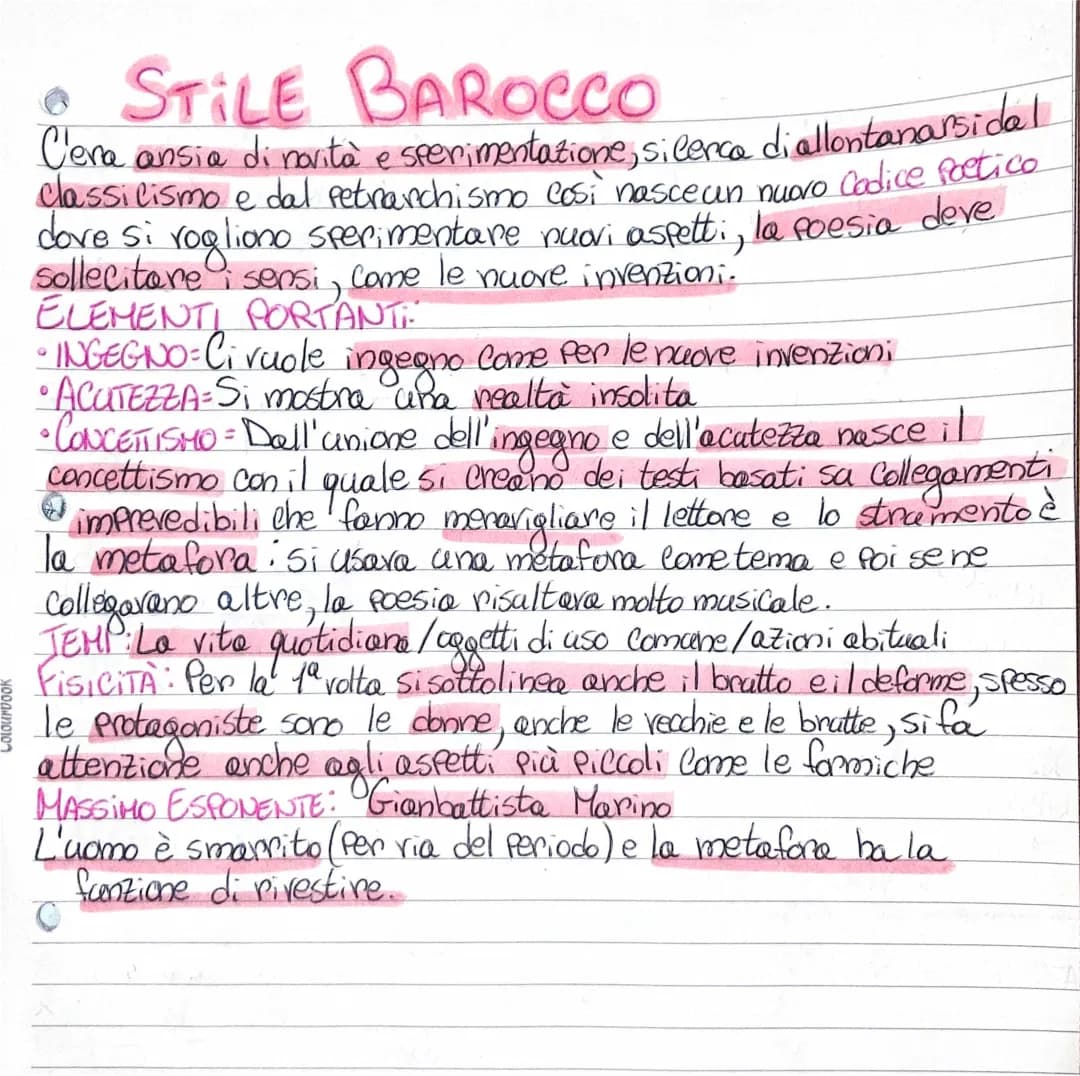 STILE BAROCCO
C'era ansia di novità e sperimentazione, si cerca di allontanarsi dal
classicismo e dal petrarchismo così nasce un nuovo codice poetico
dove si vogliono sperimentare nuovi aspetti, la poesia deve
sollecitare i sensi, come le nuove invenzioni.
ELEMENTI PORTANTI:
• INGEGNO= Ci vuole ingegno come per le nuove invenzioni
• ACUTEZZA= Si mostra una realtà insolita
• CONCETTISMO = Dall'unione dell'ingegno e dell'acutezza nasce il
concettismo con il quale si creano dei testi basati su collegamenti
imprevedibili che fanno meravigliare il lettore e lo strumento è
la metafora: si usava una metafora come tema e poi se ne
collegavano altre, la poesia risultava molto musicale.
TEMI: La vita quotidiana/oggetti di uso comune/azioni abituali
FISICITÀ: Per la 1ª volta si sottolinea anche il brutto e il deforme, spesso
le protagoniste sono le donne, anche le vecchie e le brutte, si fa
attenzione anche agli aspetti più piccoli come le formiche
MASSIMO ESPONENTE: Gianbattista Marino
L'uomo è smarrito (per via del periodo) e la metafora ha la
funzione di rivestire.
COLOURBOOK